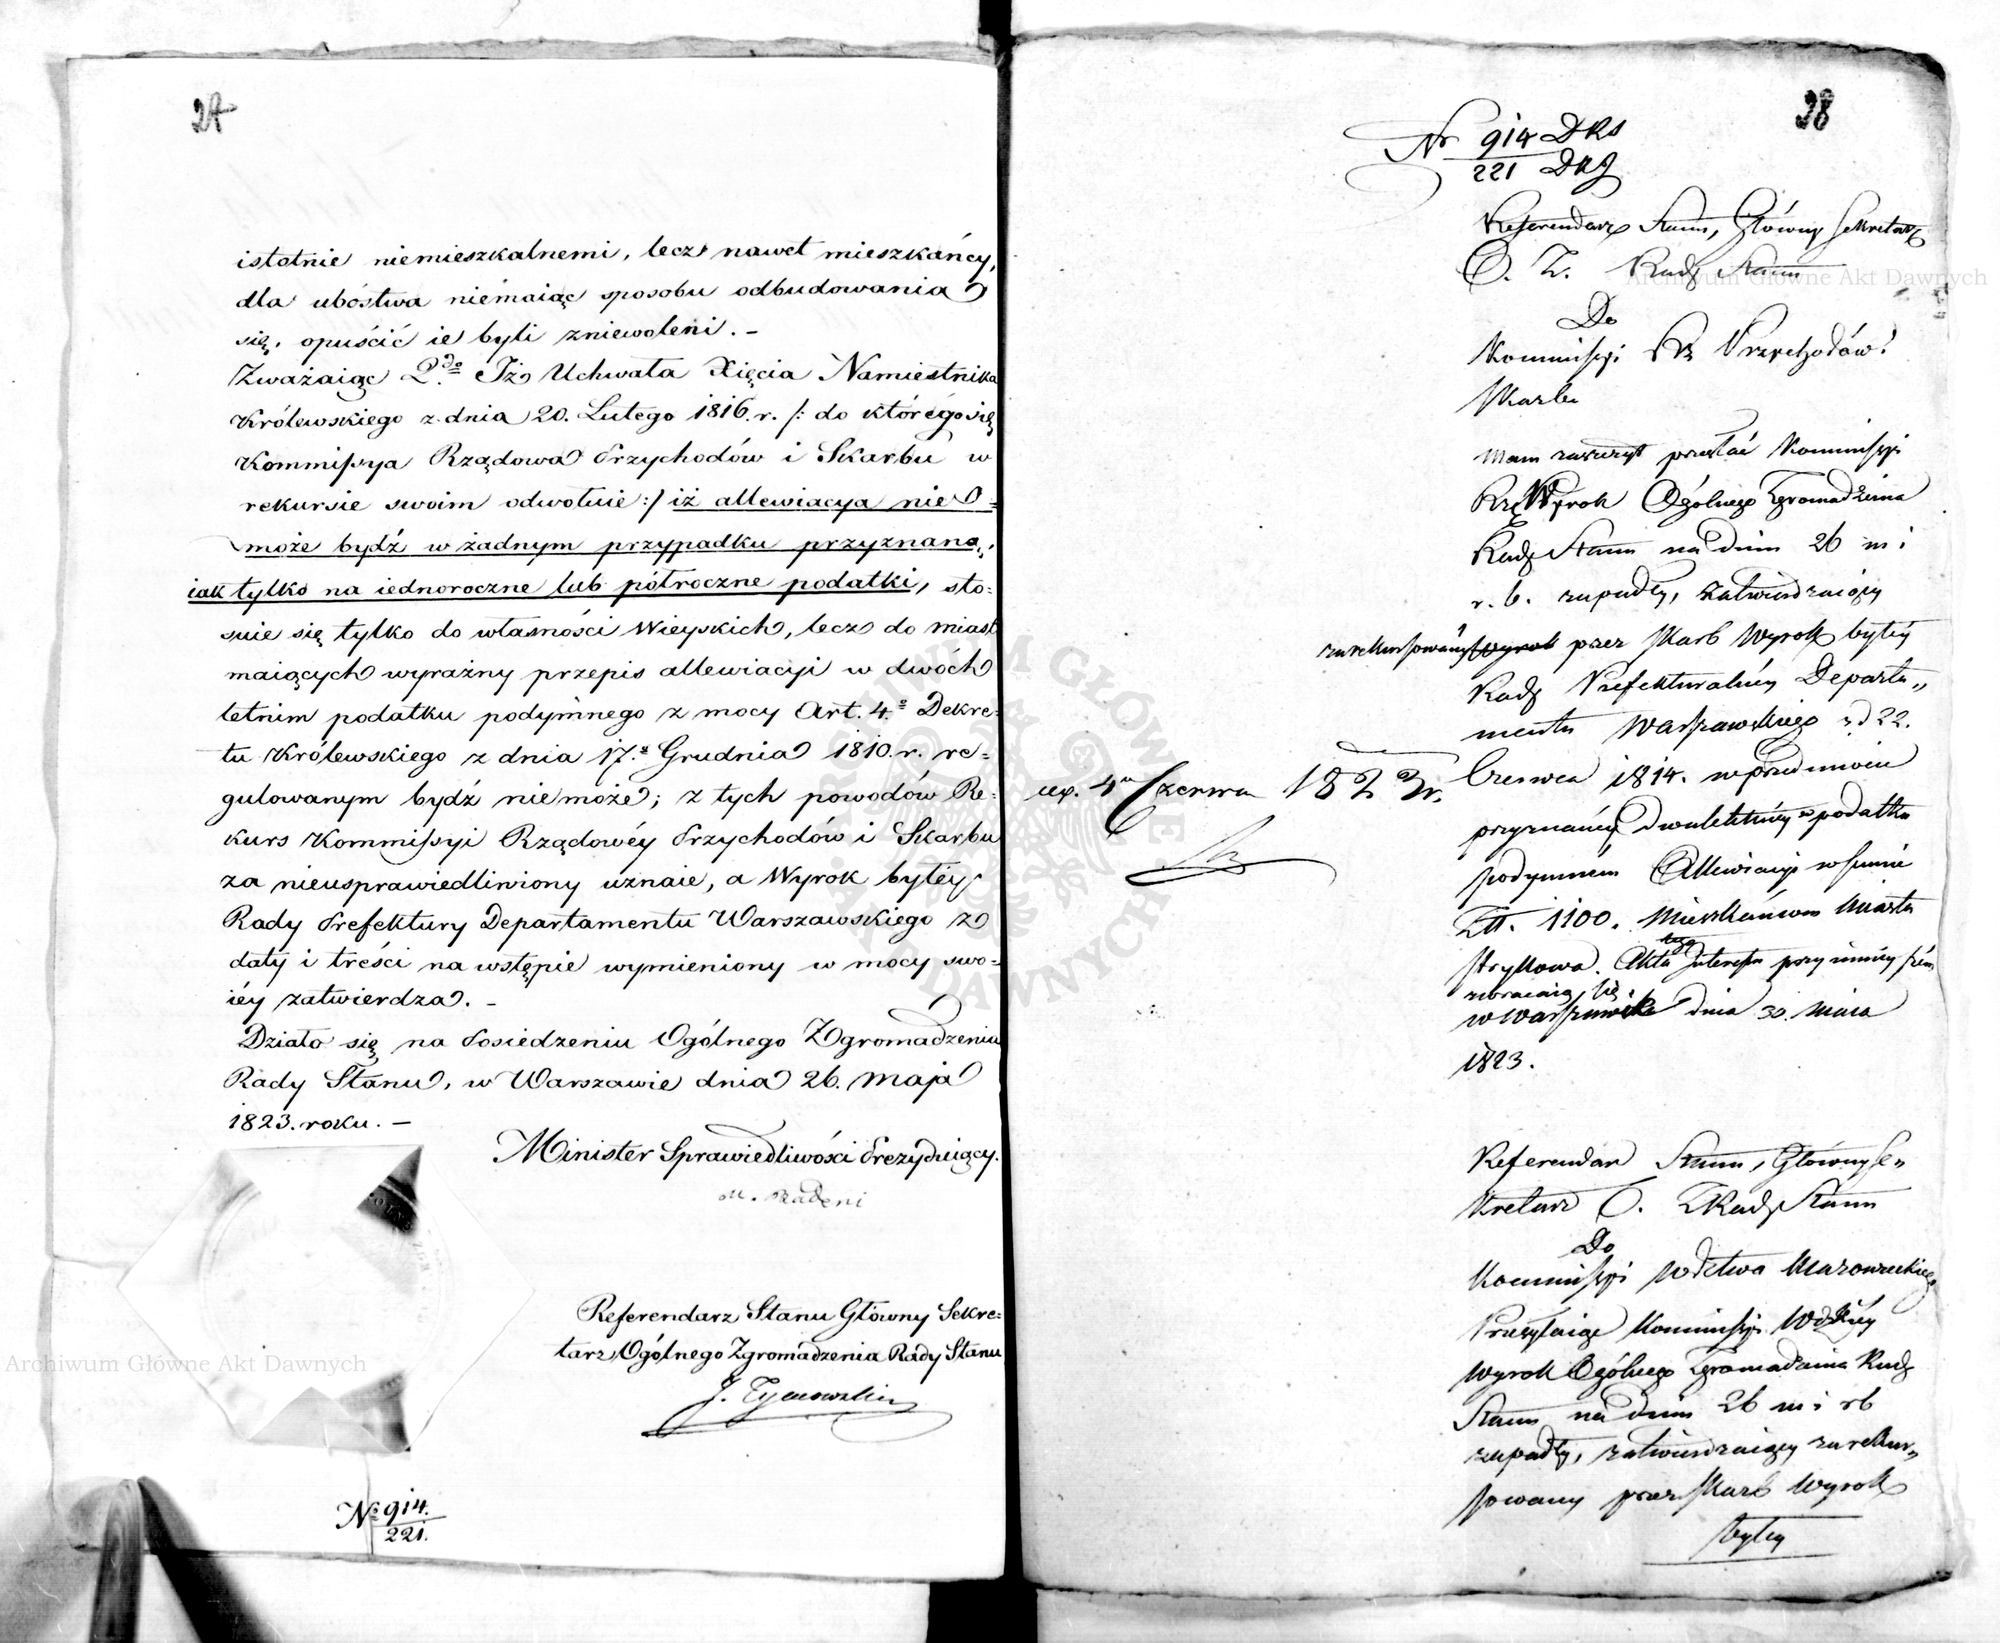 27
istotnie niemieszkalnemi, lecz nawet mieszkańcy,
dla ubóstwa niemaiąc sposobu odbudowania
się, opuścić ie byli zniewoleni. –
Zważaiąc 2do Iż Uchwała Xięcia Namiestnika
Królewskiego z dnia 20. Lutego 1816. r. /: do którego się
Kommissya Rządowa Przychodów i Skarbu w
rekursie swoim odwołuie :/ iż allewiacya nie
może bydź w żadnym przypadku przyznaną,
iak tylko na iednoroczne lub półroczne podatki, sto=
suie się tylko do własności Wieyskich, lecz do miast
maiących wyraźny przepis allewiacyi w dwóch
letnim podatku podymnego z mocy Art. 4.º Dekre=
tu Królewskiego z dnia 17.º Grudnia 1810. r. re=
gulowanym bydź nie może; z tych powodów Re=
kurs Kommissyi Rządowéy Przychodów i Skarbu
za nieusprawiedliwiony uznaie, a Wyrok byłéy
Rady Prefektury Departamentu Warszawskiego z
daty i treści na wstępie wymieniony w mocy swo=
iéy zatwierdza. –
Działo się na Posiedzeniu Ogólnego Zgromadzenia
Rady Stanu, w Warszawie dnia 26. Maja
1823. roku. –
Minister Sprawiedliwości Prezyduiący.
M. Badeni
Referendarz Stanu Główny Sekre=
tarz Ogólnego Zgromadzenia Rady Stanu
J. Tymowski
Nº 914.
221.
28
Nr 914 DKS
221
Referendarz Stanu, Główny Sekretarz
O. Z. Rady Stanu
Do
Kommissyi Rz Przychodów i
Skarbu
Mam zaszczyt przesłać Kommissyi
Rzą Wyrok Ogólnego Zgromadzenia
Rady Stanu na dniu 26 m i
r. b. zapadły, zatwierdzaiący
zarekursowany przez Skarb Wyrok byłéy
Rady Prefekturalnéy Departa„
mentu Warszawskiego z d 22.
Czerwca 1814. w przedmiocie
przyznanéy dwuletniéy w podatku
podymném Allewiacyi w summie
Złt. 1100. Mieszkańcom Miasta
Strykowa. Akta tego Interessu przy ninieyszém
zwracaią się.
w Warszawie dnia 30. Maia
1823.
exp. 4 Czerwca 1823 r.
Referendarz Stanu, Główny Se„
kretarz O. Z Rady Stanu
Do
Kommissyi Wdztwa Mazowieckiego
Przesyłaiąc Kommissyi Wdzkiéy
Wyrok Ogólnego Zgromadzenia Rady
Stanu na dniu 26 m i rb
zapadły, zatwierdzaiący zarekur„
sowany przez Skarb Wyrok
byłéy
Archiwum Główne Akt Dawnych
Archiwum Główne Akt Dawnych
ARCHIWUM GŁÓWNE AKT DAWNYCH